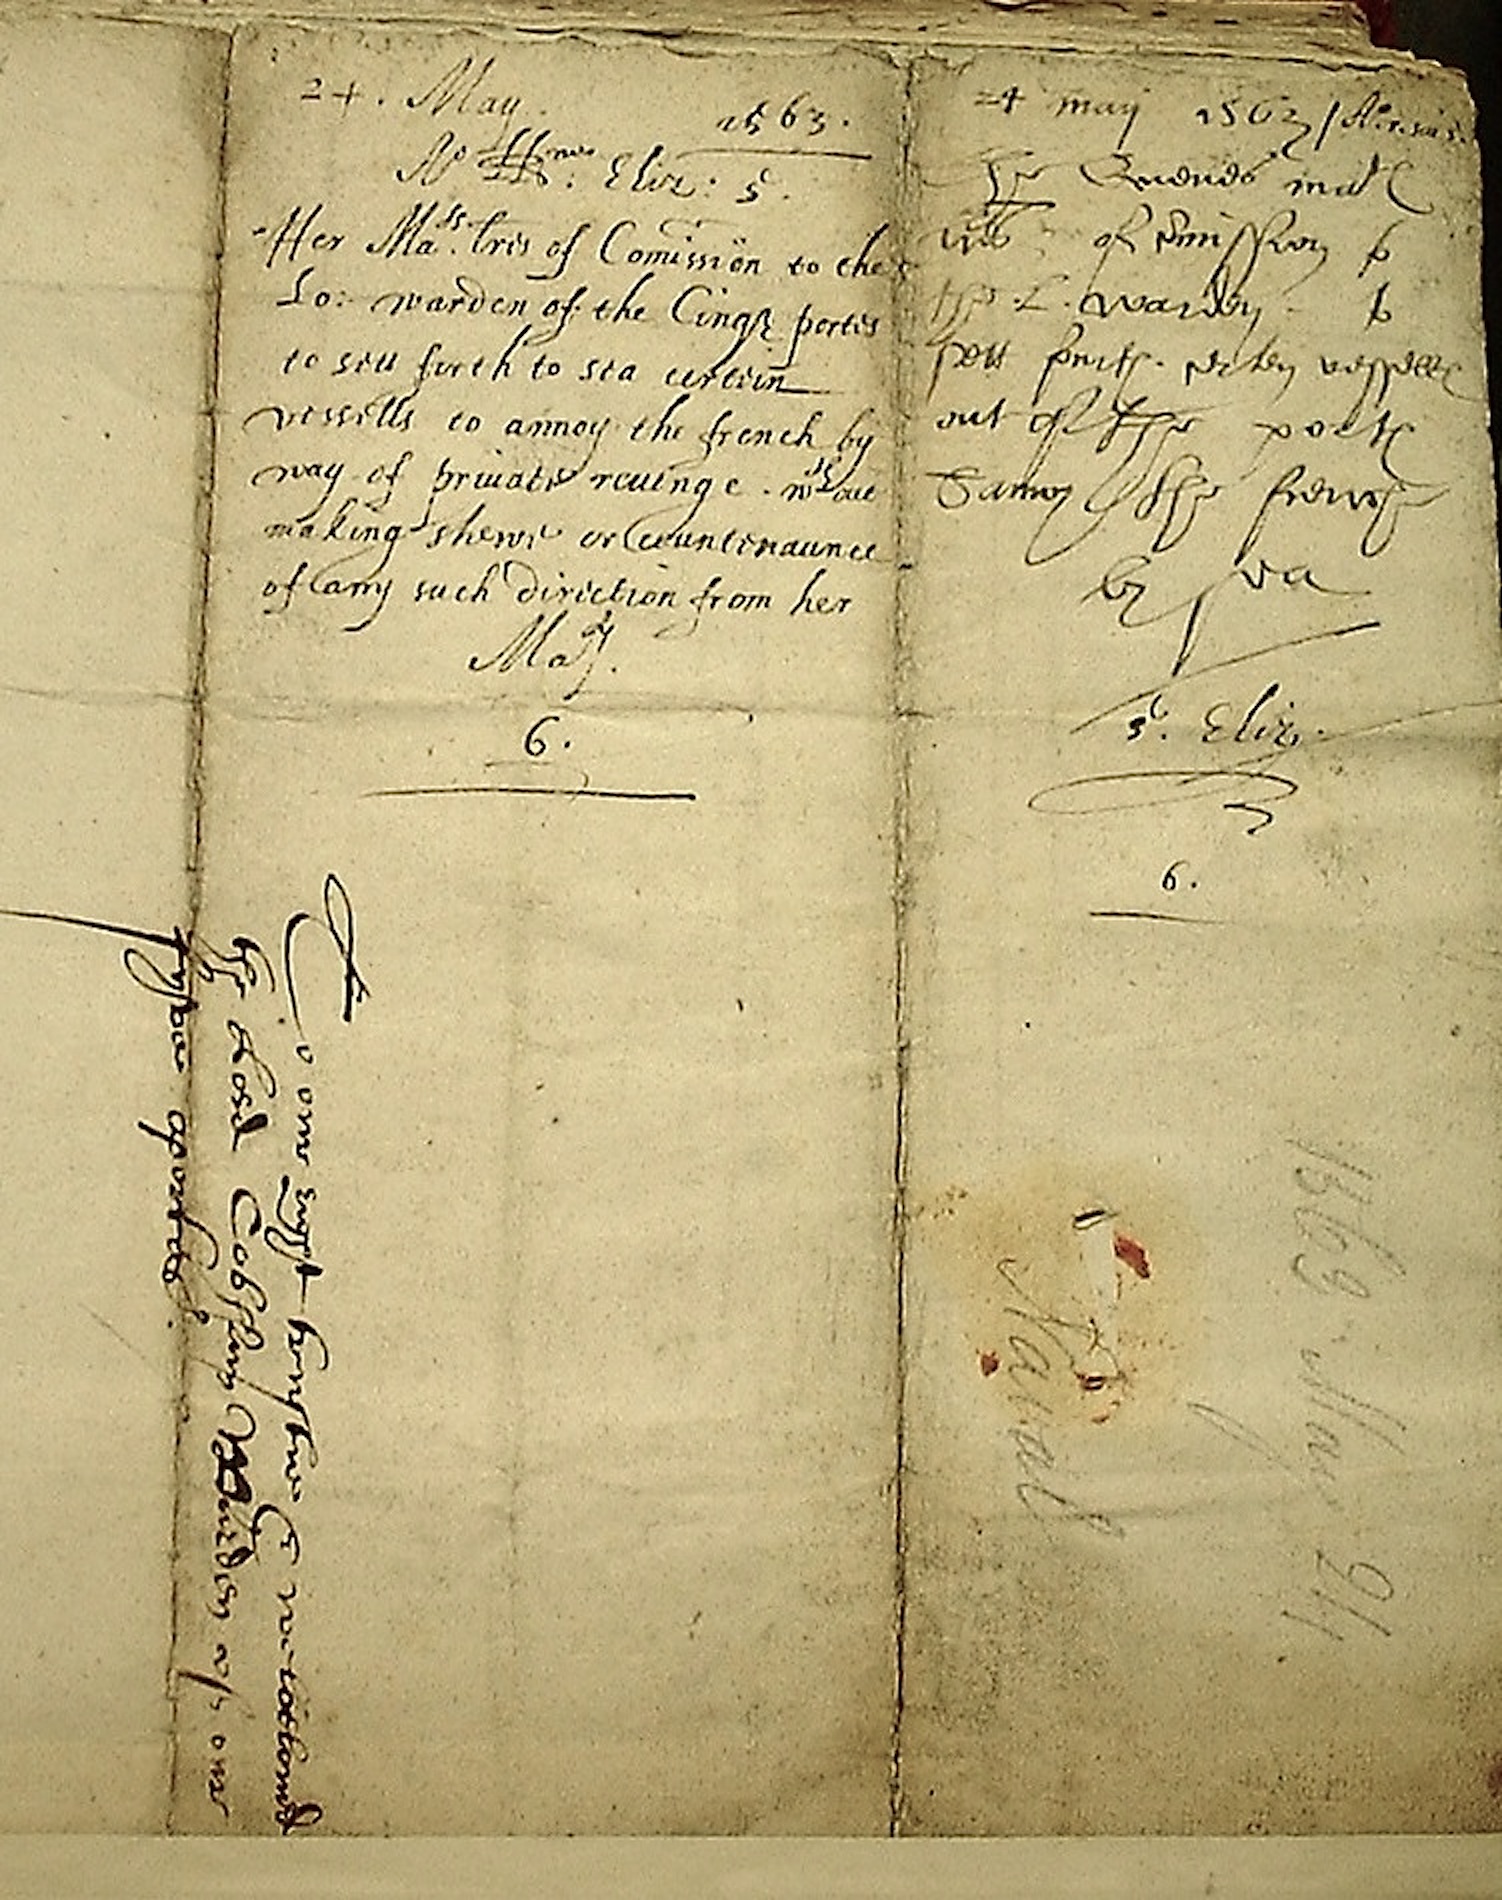 24. May.
1563.
No Eliz: 5.
Her Ma:ts lres of Comission to the
Lo: warden of the Cinq portes
to sett forth to sea certein
vessells to annoy the french by
way of private revenge wthout
making shewe or Countenaunce
of any such direction from her
Maty.
6.
24 may 1563
The Quenes mats
lres of Comission to
the L. warden to
sett furth certen vessells
out of the ports
to annoy the french
by sea
5. Eliz.
6.
To our right trustye & welbeloved
the lord Cobham Warden of our
fyve portes.
1563 May 24
Naval